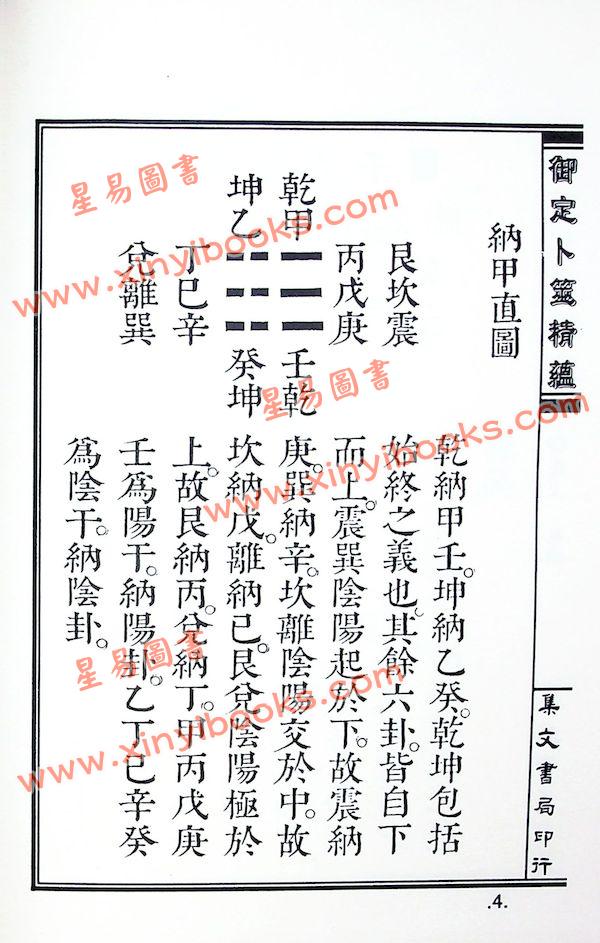 御定卜筮精蘊
集文書局印行
納甲直圖
艮坎震
丙戊庚
乾甲
壬乾
坤乙
癸坤
丁巳辛
兌離巽
乾納甲壬。坤納乙癸。乾坤包括
始終之義也。其餘六卦。皆自下
而上。震巽陰陽起於下。故震納
庚。巽納辛。坎離陰陽交於中。故
坎納戊。離納己。艮兌陰陽極於
上。故艮納丙。兌納丁。甲丙戊庚
壬為陽干。納陽卦。乙丁己辛癸
為陰干。納陰卦。
.4.
星易圖書
www.xinyibooks.com
星易圖書
www.xinyibooks.com
星易圖書
www.xinyibooks.com